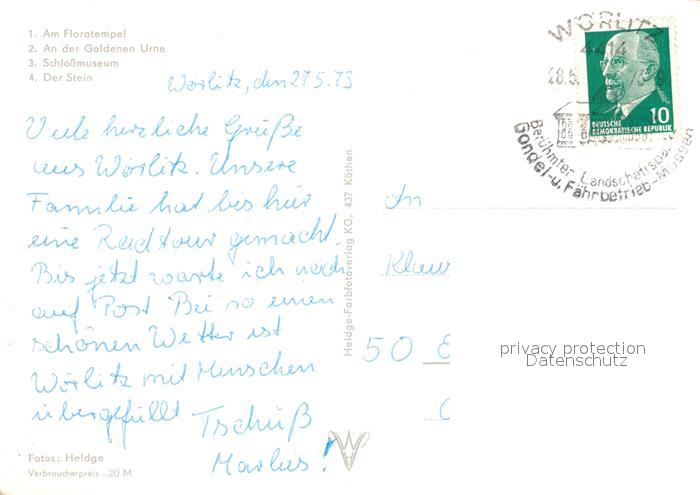 1. Am Floratempel
2. An der Goldenen Urne
3. Schloßmuseum
4. Der Stein
Wörlitz, den 27.5.73
Viele herzliche Grüße
aus Wörlitz. Unsere
Familie hat bis hier
eine Radtour gemacht.
Bis jetzt warte ich noch
auf Post Bei so einen
schönen Wetter ist
Wörlitz mit Menschen
überfüllt Tschüß
Markus!
Fotos: Heldge
Verbraucherpreis -,20 M
Heldge-Farbfotoverlag KG, 437 Köthen
WÖRLITZ
4414
28.5.
10
DEUTSCHE
DEMOKRATISCHE REPUBLIK
Berühmter Landschaftspark
Gondel- u. Fährbetrieb-Museen
An
Klaus
50 E
privacy protection
Datenschutz